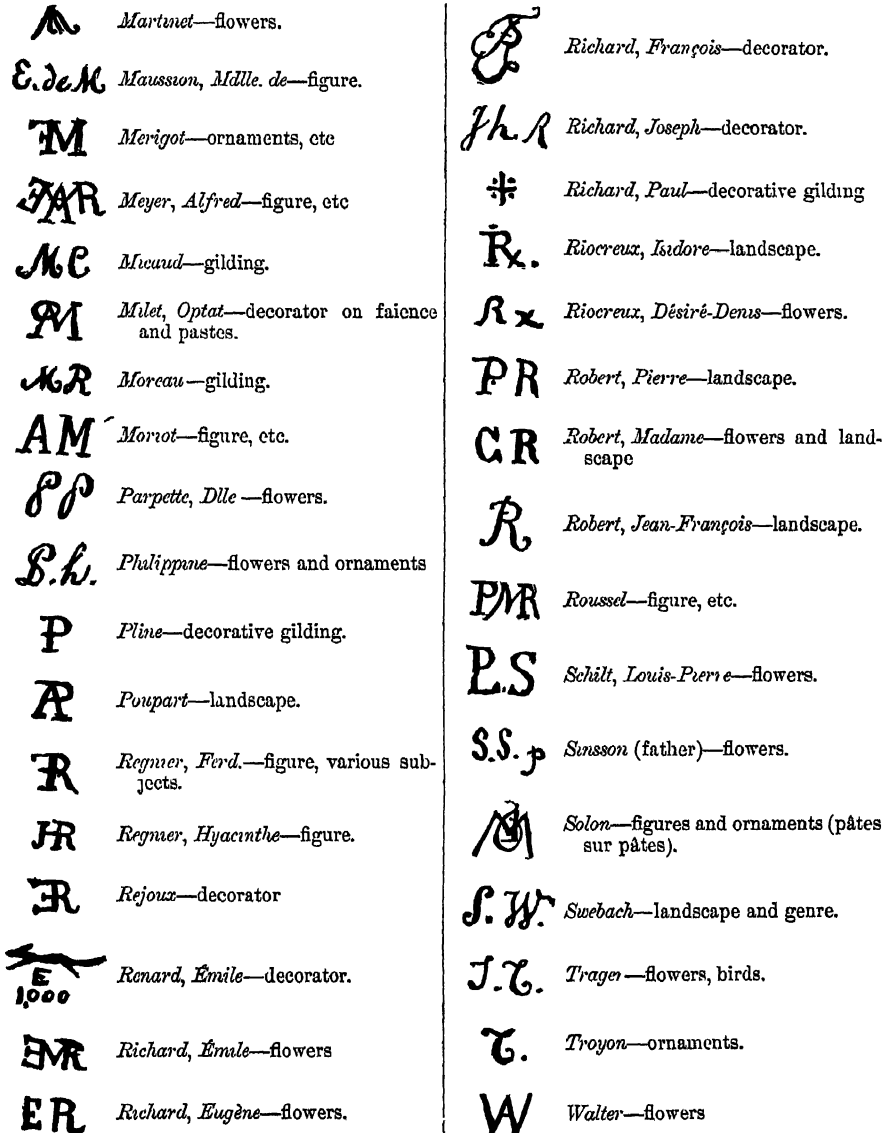 Martinet—flowers.
E. de M. Maussion, Mdlle. de—figure.
EM Merigot—ornaments, etc
Meyer, Alfred—figure, etc
MC Micaud—gilding.
M Milet, Optat—decorator on faience
and pastes.
MR Moreau—gilding.
AM Moriot—figure, etc.
PP Parpette, Dlle—flowers.
P.h. Philippine—flowers and ornaments
P Pline—decorative gilding.
AP Poupart—landscape.
FR Regnier, Ferd.—figure, various sub-
jects.
HR Regnier, Hyacinthe—figure.
ER Rejoux—decorator
E
1,000
Renard, Émile—decorator.
EMR Richard, Émile—flowers
ER Richard, Eugène—flowers.
Richard, François—decorator.
Jh. R Richard, Joseph—decorator.
Richard, Paul—decorative gilding
Rx. Riocreux, Isidore—landscape.
Rx Riocreux, Désiré-Denis—flowers.
PR Robert, Pierre—landscape.
C.R Robert, Madame—flowers and land-
scape
R Robert, Jean-François—landscape.
PMR Roussel—figure, etc.
P.S Schilt, Louis-Pierre—flowers.
S.S. p Sinsson (father)—flowers.
Solon—figures and ornaments (pâtes
sur pâtes).
S. W. Swebach—landscape and genre.
J.T. Trager—flowers, birds.
T. Troyon—ornaments.
W Walter—flowers